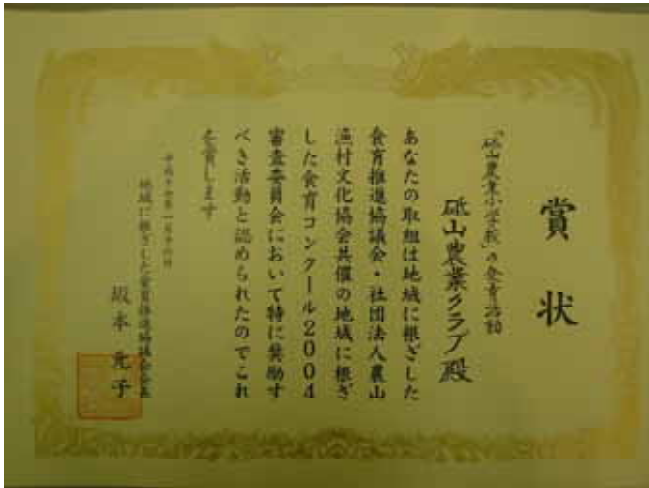 賞状
「砥山農業小学校」の食育活動
砥山農業クラブ殿
あなたの取組は地域に根ざした
食育推進協議会・社団法人農山
漁村文化協会共催の地域に根ざ
した食育コンクール2004
審査委員会において特に奨励す
べき活動と認められたのでこれ
を賞します
地域に根ざした食育推進協議会会長
坂本元子